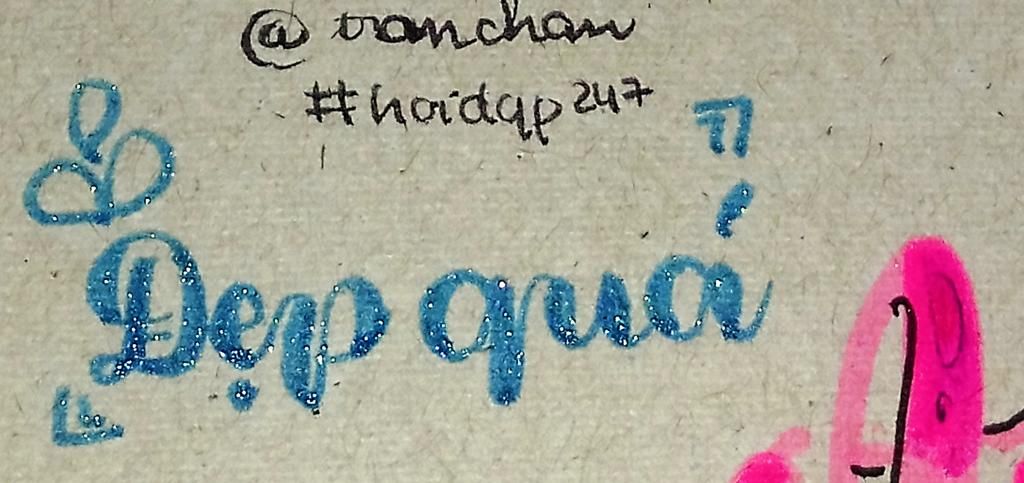 @tranchan
#hoidqp247
Đẹp quá